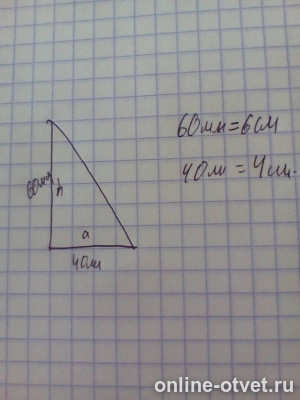 60мм=6см
40м = 4см.
60мм h
a
40м
online-otvet.ru